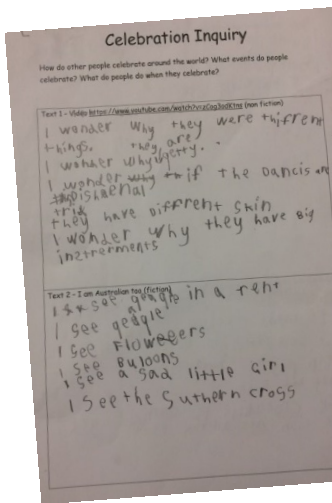 Celebration Inquiry
How do other people celebrate around the world? What events do people
celebrate? What do people do when they celebrate?
Text 1 - Video https://www.youtube.com/watch? (non fiction)
I wonder why they were thifrent
things. they are
I wonder why pretty.
I wonder if the Dancis are
trid
they have Different Skin
I wonder why they have big
inztrerments
Text 2 - I am Australian too (fiction)
I see in a tent
I see
I see Flowers
I see Buloons
I see a sad little girl
I see the Suthern cross